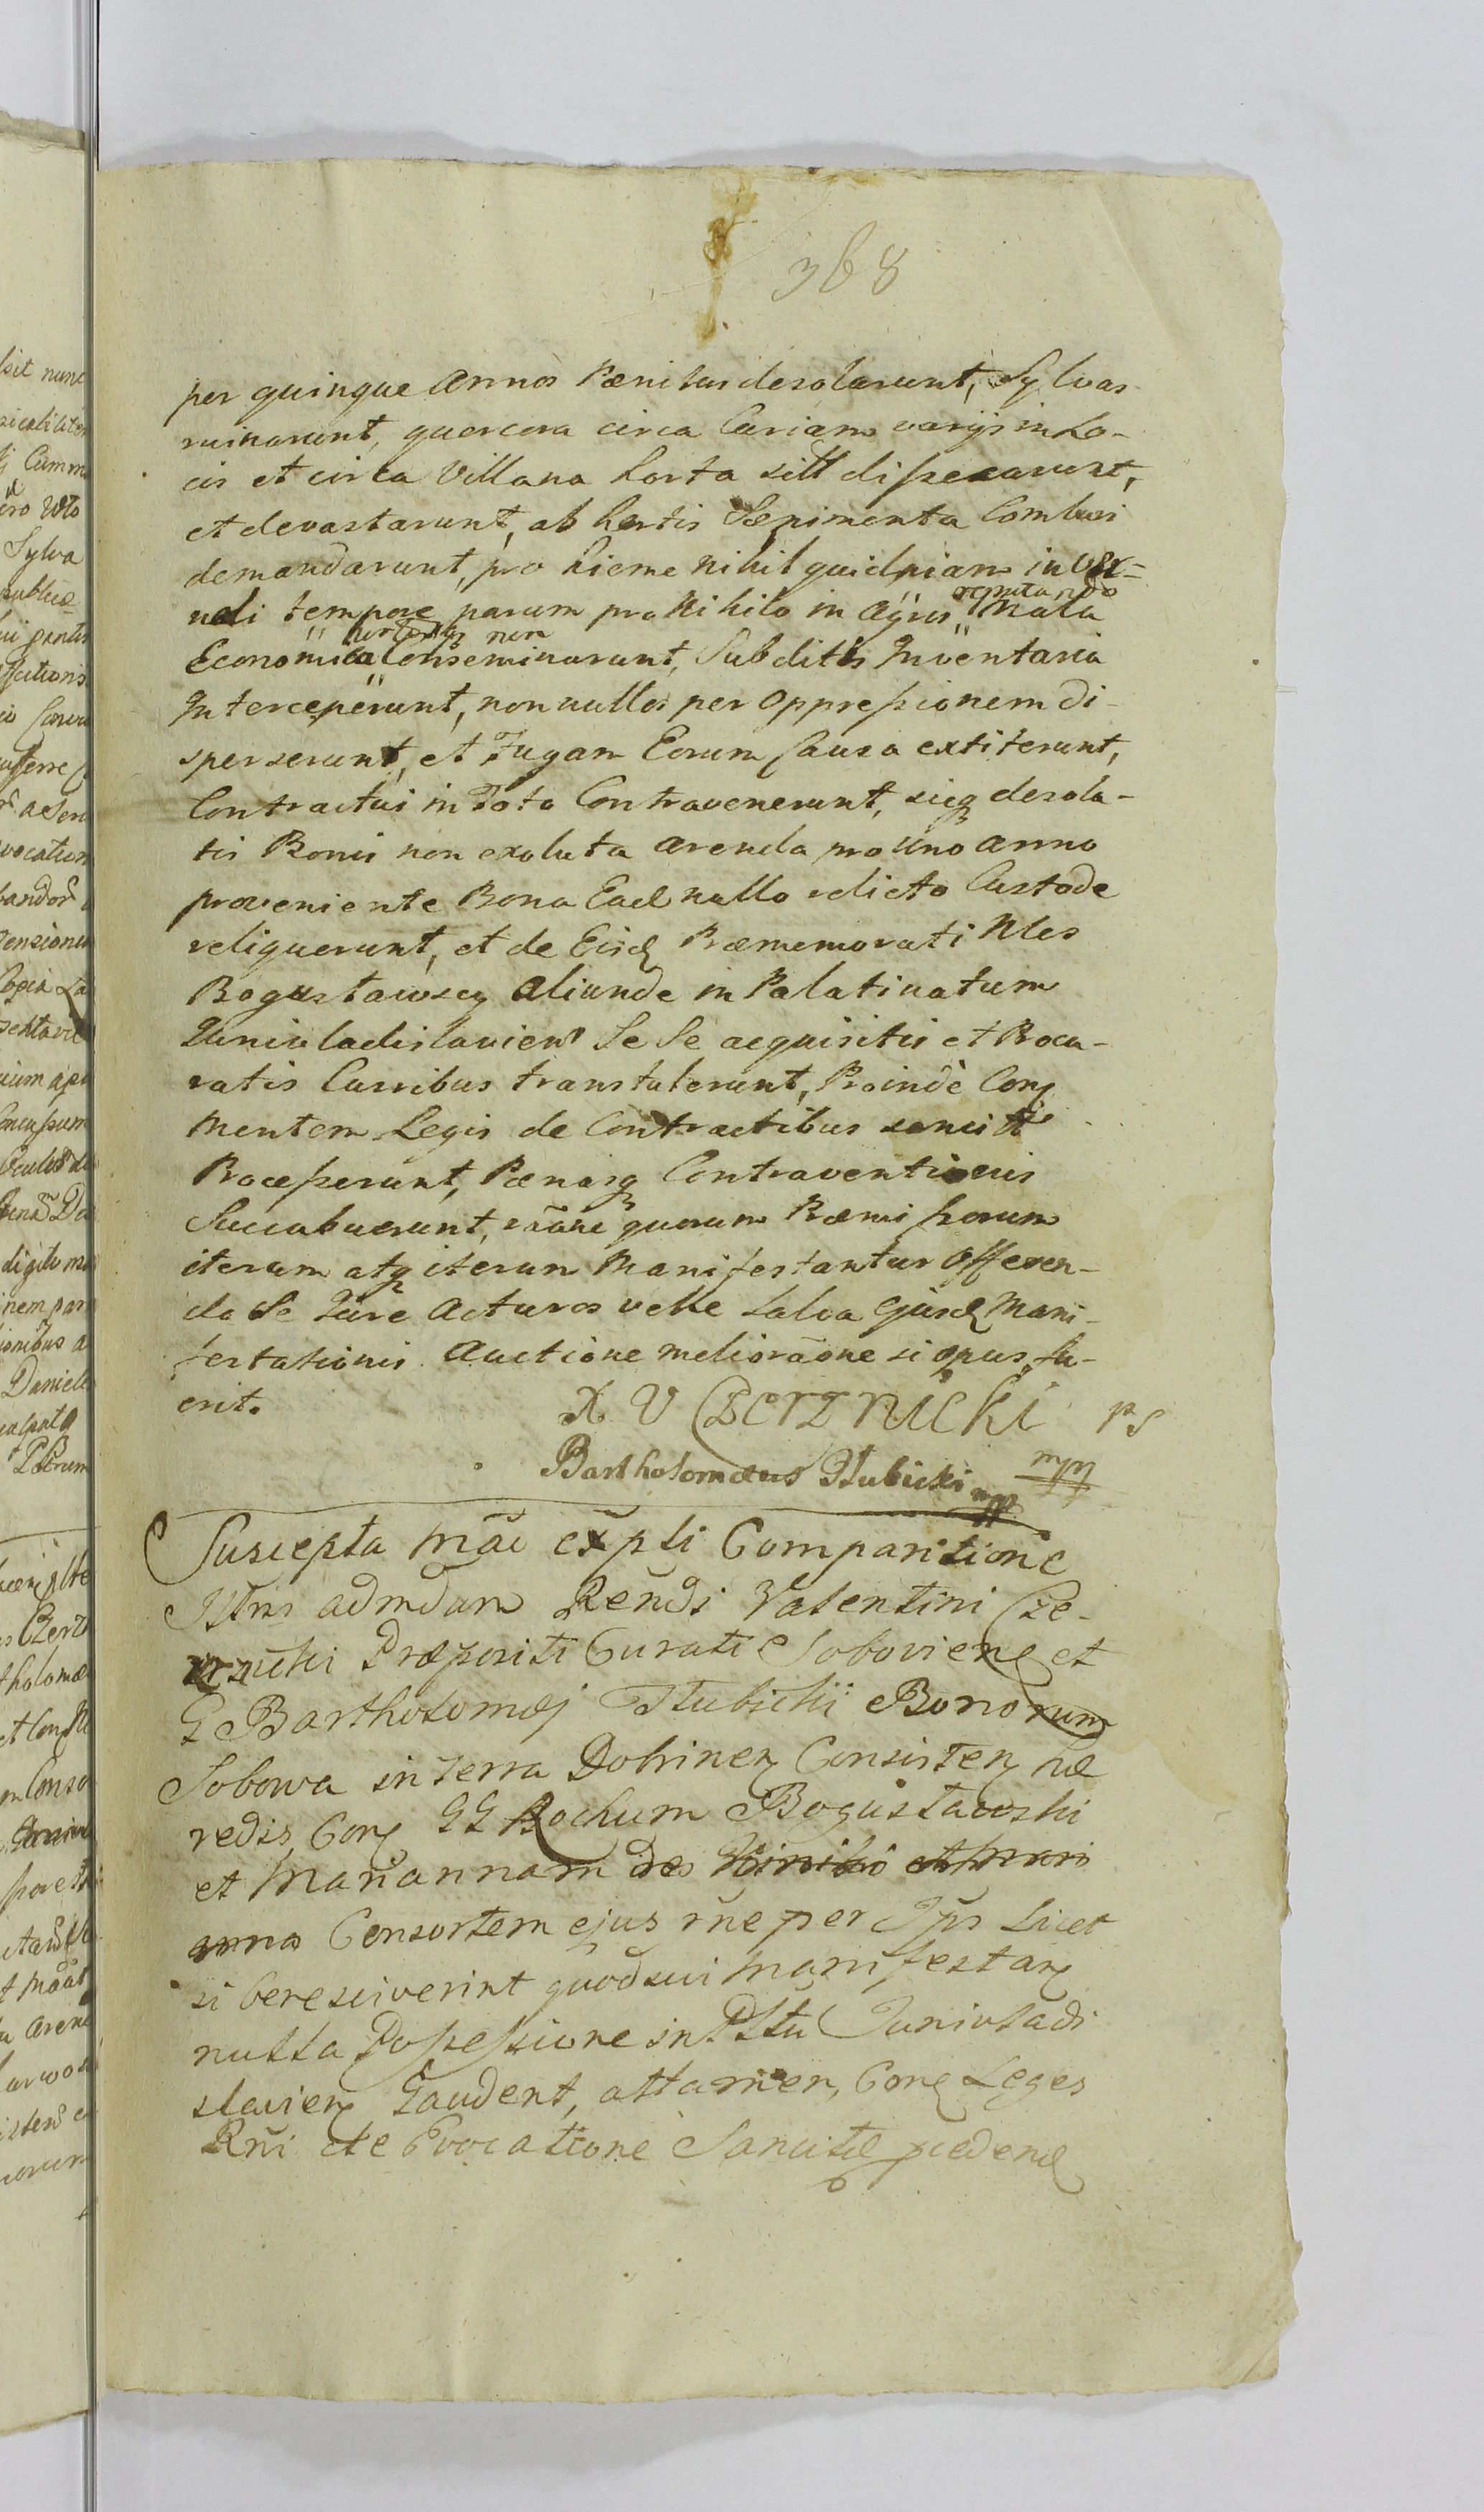 368
per quinque annos Pænitus desolarunt, Sylvas
ruinarunt, quercera circa Curiam varijs in Lo-
cis et circa Villana horta sitt dissecarunt,
et devastarunt, ab hortis Sæpimenta Comburi
demandarunt, pro hieme nihil quidpiam in ver-
nali tempore parum pro Nihilo in agros reputando Mala
Economica Conseminarunt, Subditis Inventaria
Interceperunt, non nullos per oppressionem di-
sperserunt, et Fugam Eorum Causa extiterunt,
Contractui in Toto Contravenerunt, sicq desola-
tis Bonis non exoluta arenda pro uno anno
proveniente Bona Ead nullo relicto Custode
reliquerunt, et de Eisd Præmemorati Nles
Bogustawscy aliunde in Palatinatum
Juniuladislaviens Se Se acquisitis et Procu-
ratis Curribus transtulerunt, Proindè Conq
Mentem Legis de Contractibus sancitæ
Processerunt, Pænasq Contraventionis
Succubuerunt, rāone quorum Præmissorum
iterum atq iterum Manifestantur offeren-
do Se Jure Acturos velle Salva Ejusd Mani-
festationis Auctione meliorāone si opus fu-
erit.
X V Czerznicki ps
mpp
Bartholomæus Stubicki mpp
Suscepta Māi exp̃li Comparitione
Jllris admdum Rēndi Valentini Cze-
rznicki Præpositi Curati Soboviens et
G Bartholomæj Stubickii Bonorum
Sobowa in Terra Dobrinen Consisten hæ
redis, Conq GG Rochum Bogustawski
et Mariannam de
Consortem ejus rñe per Jp̃s Licet
si bene sciverint quod sui Manifestanq
nulla Possessione in Plttu Juniuladi
slavien Gaudent, attamen, Conq Leges
Rñi de Evocatione Sancitæ